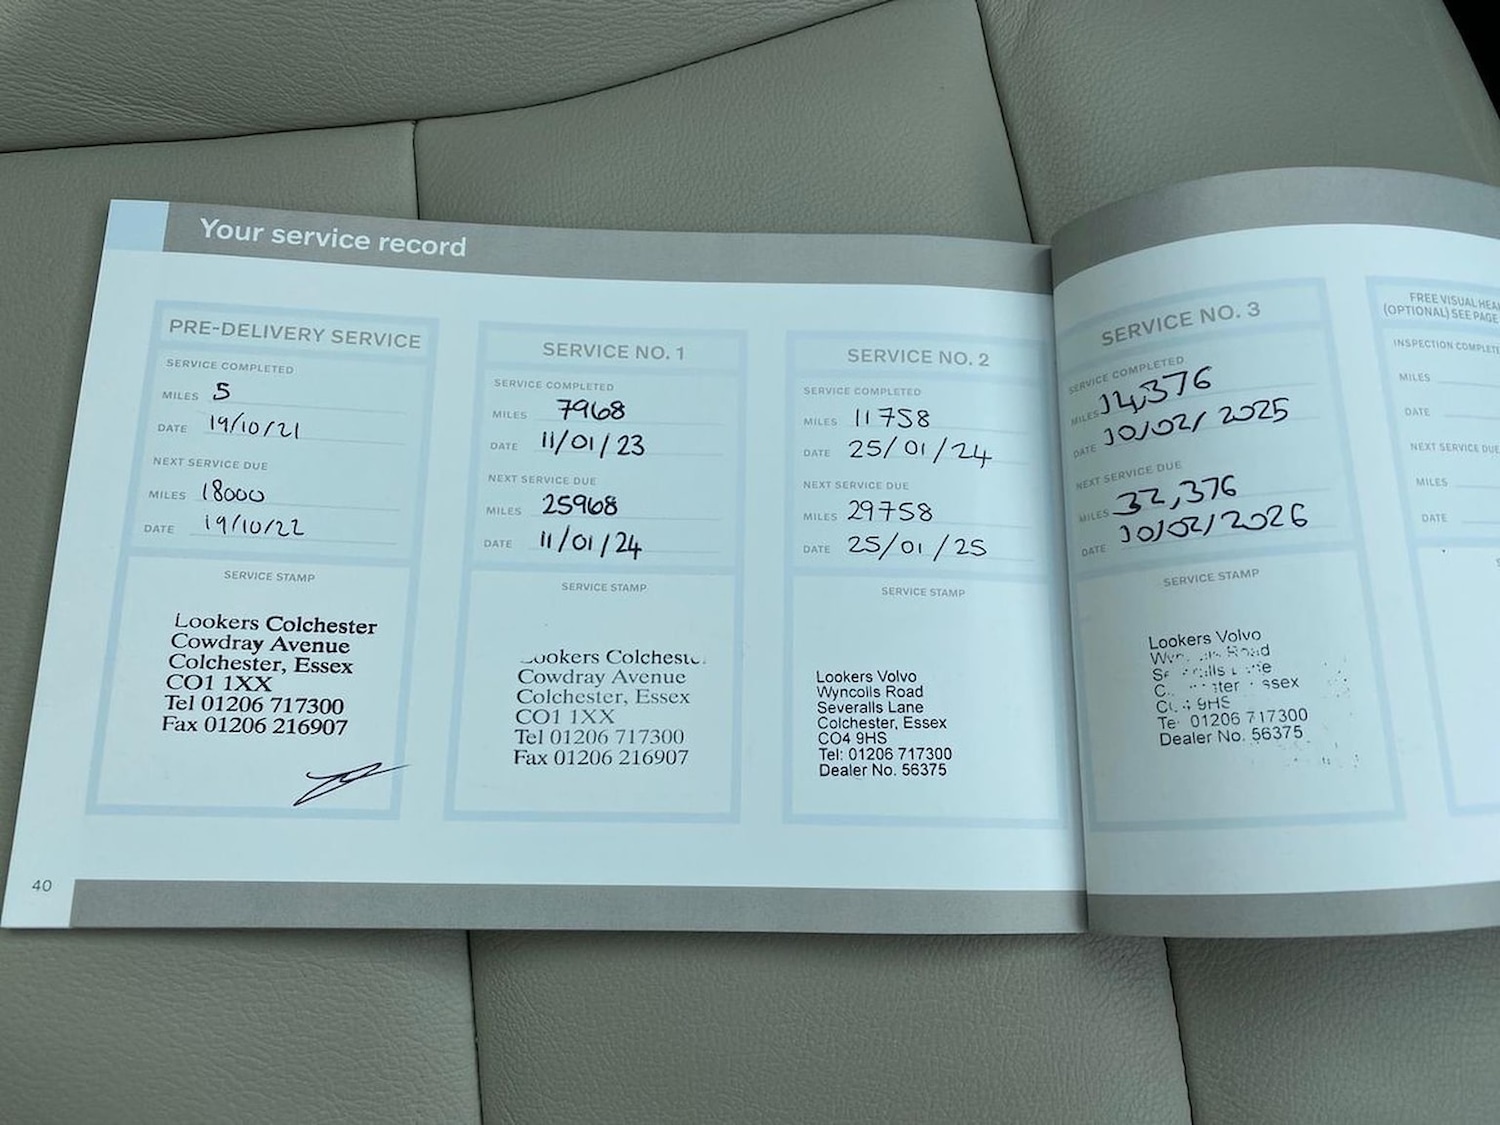 Your service record
PRE-DELIVERY SERVICE
SERVICE COMPLETED
MILES 5
DATE 19/10/21
NEXT SERVICE DUE
MILES 18000
DATE 19/10/22
SERVICE STAMP
Lookers Colchester
Cowdray Avenue
Colchester, Essex
CO1 1XX
Tel 01206 717300
Fax 01206 216907
40
SERVICE NO. 1
SERVICE COMPLETED
MILES 7968
DATE 11/01/23
NEXT SERVICE DUE
MILES 25968
DATE 11/01/24
SERVICE STAMP
Lookers Colchester
Cowdray Avenue
Colchester, Essex
CO1 1XX
Tel 01206 717300
Fax 01206 216907
SERVICE NO. 2
SERVICE COMPLETED
MILES 11758
DATE 25/01/24
NEXT SERVICE DUE
MILES 29758
DATE 25/01/25
SERVICE STAMP
Lookers Volvo
Wyncolls Road
Severalls Lane
Colchester, Essex
CO4 9HS
Tel: 01206 717300
Dealer No. 56375
SERVICE NO. 3
SERVICE COMPLETED
MILES 14,376
DATE 10/02/2025
NEXT SERVICE DUE
MILES 32,376
DATE 10/02/2026
SERVICE STAMP
Lookers Volvo
Road
9HS
01206 717300
Dealer No. 56375
FREE VISUAL
(OPTIONAL) SEE PAGE
INSPECTION
MILES
DATE
NEXT SERVICE DUE
MILES
DATE